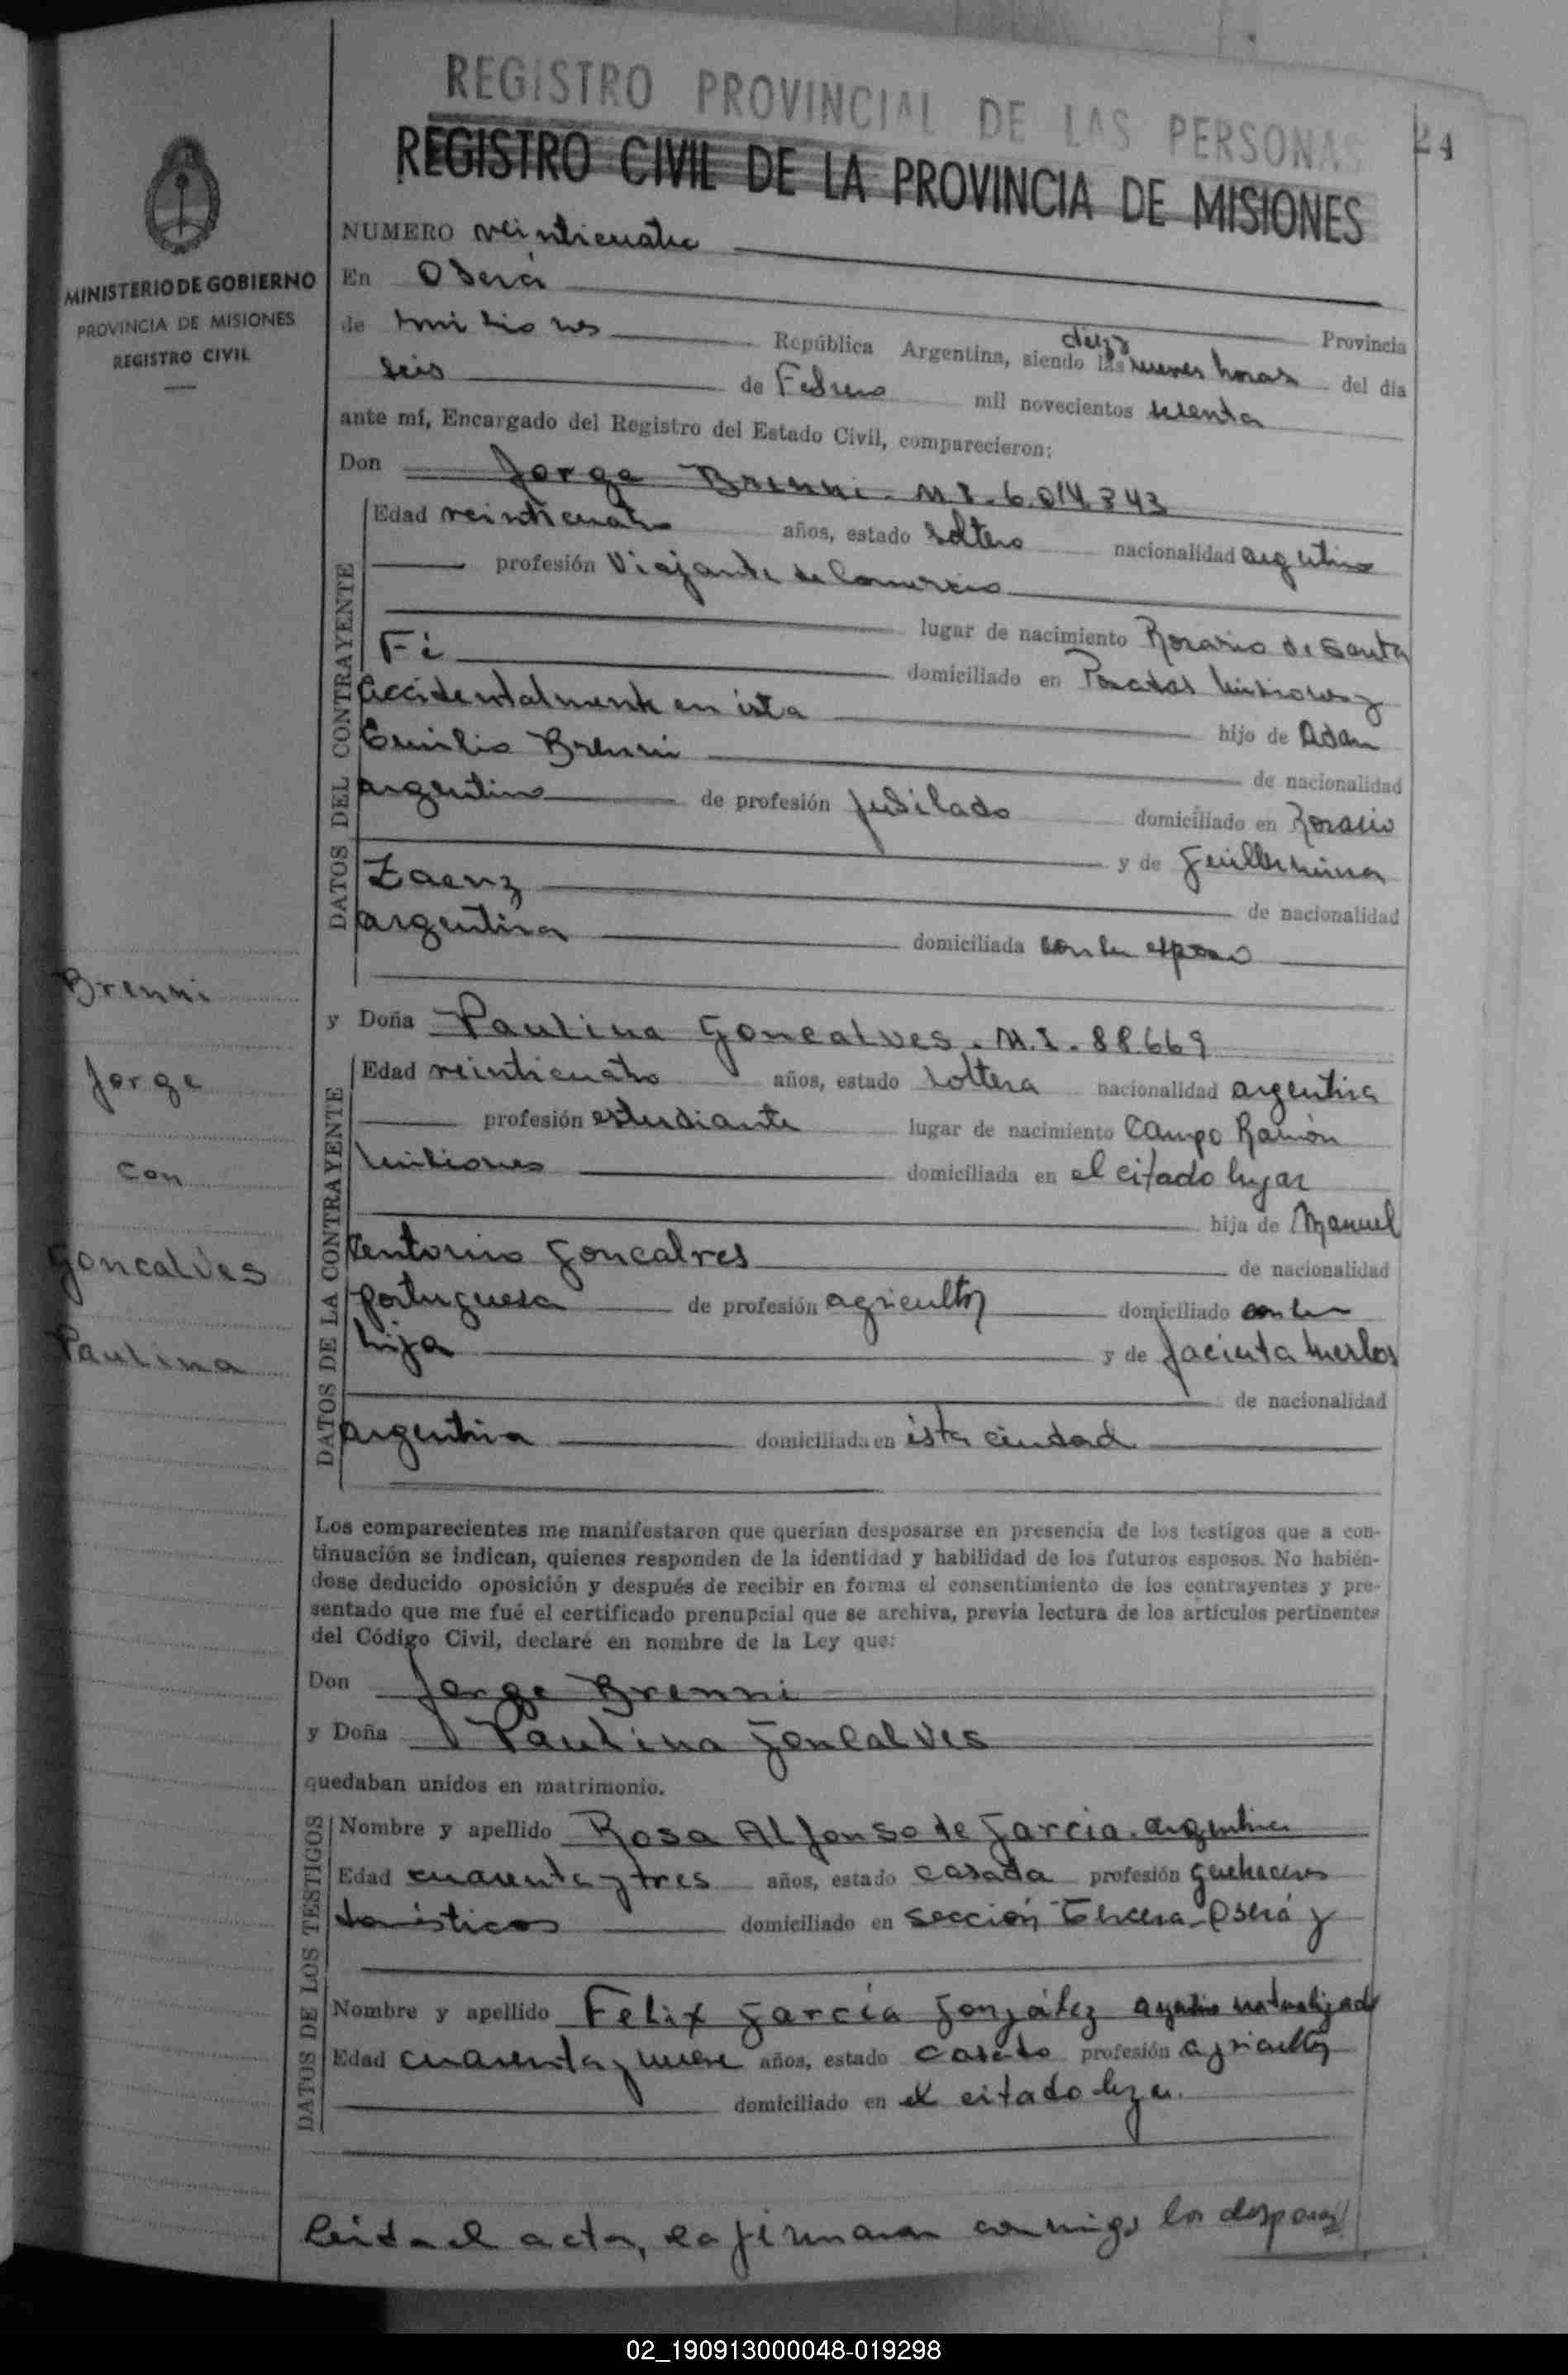 REGISTRO PROVINCIAL DE LAS PERSONAS
24
REGISTRO CIVIL DE LA PROVINCIA DE MISIONES
MINISTERIO DE GOBIERNO
PROVINCIA DE MISIONES
REGISTRO CIVIL
NUMERO veinticuatro
En Oberá Provincia
de misiones República Argentina, siendo las diez nueves horas del día
seis de Febrero mil novecientos setenta
ante mí, Encargado del Registro del Estado Civil, comparecieron:
Don Jorge Brenni - M.I. 6.014.343
DATOS DEL CONTRAYENTE
Edad veinticuatro años, estado soltero nacionalidad argentino
profesión Viajante de Comercio
lugar de nacimiento Rosario de Santa
Fé domiciliado en Posadas Misiones y
accidentalmente en ésta hijo de Adan
Emilio Brenni de nacionalidad
argentino de profesión jubilado domiciliado en Rosario
y de Guillermina
Zaenz de nacionalidad
argentina domiciliada con su esposo
Brenni
Jorge
con
Goncalves
Paulina
y Doña Paulina Goncalves - M.I. 88669
DATOS DE LA CONTRAYENTE
Edad veinticuatro años, estado soltera nacionalidad argentina
profesión estudiante lugar de nacimiento Campo Ramón
Misiones domiciliada en el citado lugar
hija de Manuel
Goncalves de nacionalidad
portuguesa de profesión agricultor domiciliado con su
hija y de Jacinta Merlos
de nacionalidad
argentina domiciliada en ésta ciudad
Los comparecientes me manifestaron que querían desposarse en presencia de los testigos que a con-
tinuación se indican, quienes responden de la identidad y habilidad de los futuros esposos. No habién-
dose deducido oposición y después de recibir en forma el consentimiento de los contrayentes y pre-
sentado que me fué el certificado prenupcial que se archiva, previa lectura de los artículos pertinentes
del Código Civil, declaré en nombre de la Ley que:
Don Jorge Brenni
y Doña Paulina Goncalves
quedaban unidos en matrimonio.
DATOS DE LOS TESTIGOS
Nombre y apellido Rosa Alfonso de Garcia - argentina
Edad cuarenta y tres años, estado casada profesión quehaceres
domésticos domiciliado en sección tercera - Oberá y
Nombre y apellido Felix García González argentino naturalizado
Edad cuarenta y nueve años, estado casado profesión agricultor
domiciliado en el citado lugar.
Leída el acta, la firmaran conmigo los desposados
02_190913000048-019298